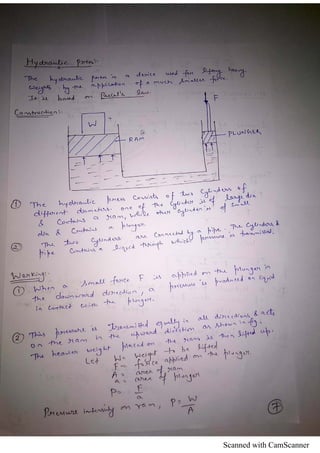 Hydraulic press:-
The hydraulic press is a device used for lifting heavy
weights by the application of a much smaller force.
It is based on Pascal's law.
Construction:-
F
W
RAM
PLUNGER
① The hydraulic press consists of two cylinders of
different diameters. one of the cylinder is of large dia
& contains a ram, while other cylinder is of small
dia & contains a plunger.
② The two cylinders are connected by a pipe. The cylinders &
pipe contains a liquid through which pressure is transmitted.
Working:-
① When a small force F is applied on the plunger in
the downward direction, a pressure is produced on liquid
in contact with the plunger.
② This pressure is transmitted equally in all directions & acts
on the ram in the upward direction as shown in fig.
The heavier weight placed on the ram is then lifted up.
Let W = weight to be lifted
F = force applied on the plunger
A = area of ram
a = area of plunger
P = F/a
Pressure intensity on ram, P = W/A
⑦
Scanned with CamScanner